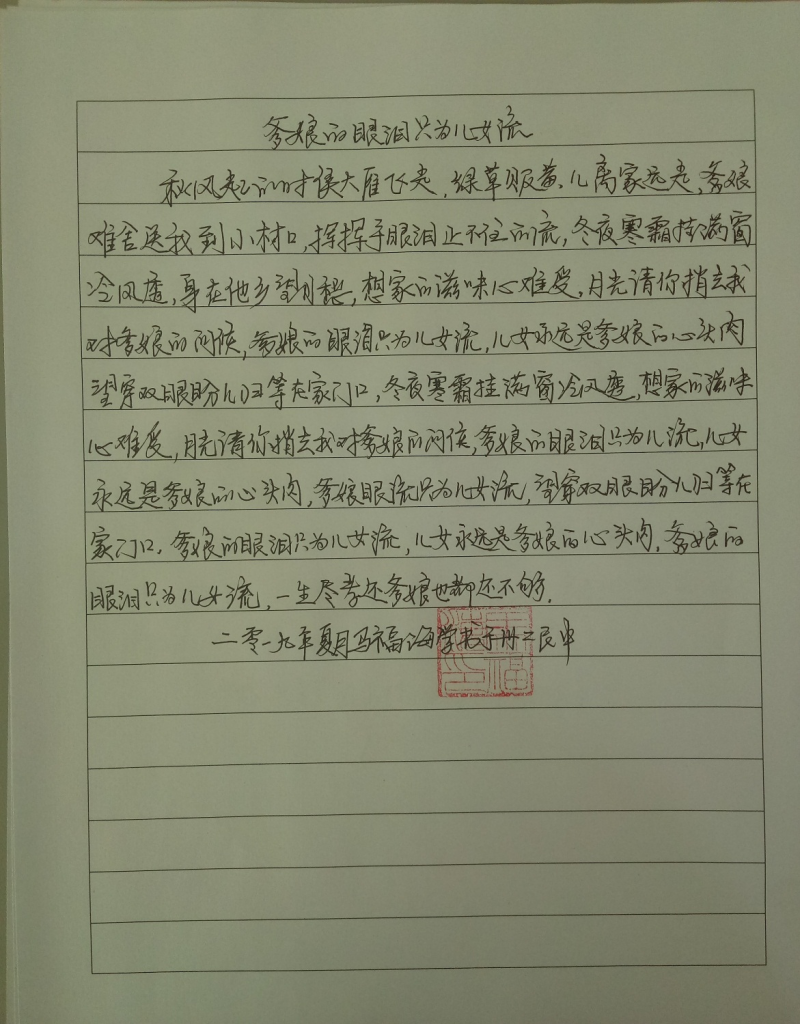 爹娘的眼泪只为儿女流
秋风起的时侯大雁飞走,绿草贩黄,儿离家远走,爹娘
难舍送我到小村口,挥挥手眼泪止不住的流,冬夜寒霜挂满窗
冷风透,身在他乡望月愁,想家的滋味心难受,月光请你捎去我
对爹娘的问侯,爹娘的眼泪只为儿女流,儿女永远是爹娘的心头肉
望穿双眼盼儿归等在家门口,冬夜寒霜挂满窗冷风透,想家的滋味
心难受,月光请你捎去我对爹娘的问侯,爹娘的眼泪只为儿流,儿女
永远是爹娘的心头肉,爹娘眼流只为儿女流,望穿双眼盼儿归等在
家门口,爹娘的眼泪只为儿女流,儿女永远是爹娘的心头肉,爹娘的
眼泪只为儿女流,一生尽孝还爹娘也都还不够.
二零一九年夏月马福海学书于丹二民中